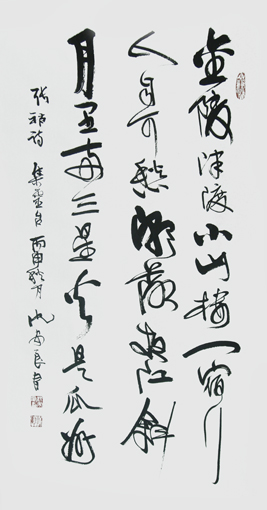 金陵津渡小山楼一宿行
人自可愁潮落夜江斜
月里两三星火是瓜洲
张祜诗 集灵台 丙申秋月 良书